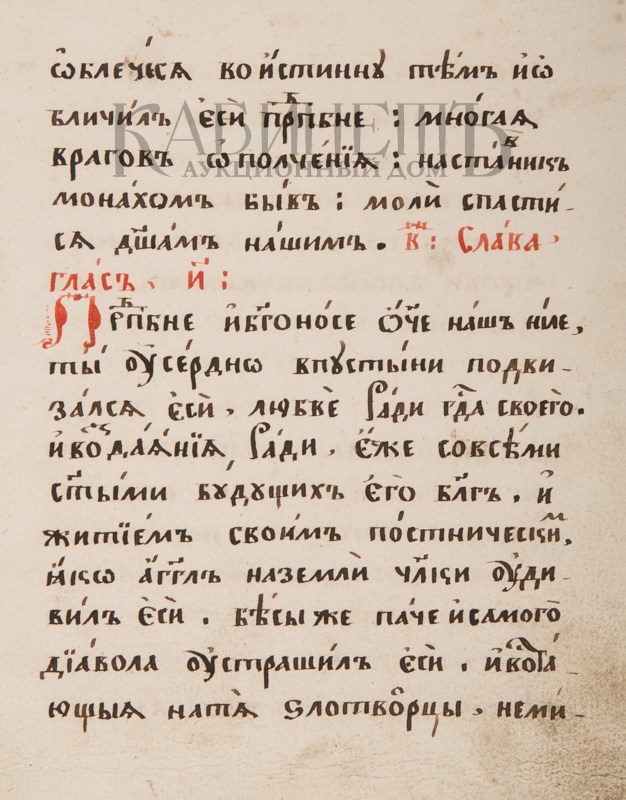 ѡблечи́сѧ во и҆́стиннꙋ тѣ́мъ и҆ѡ
бличи́лъ є҆сѝ прⷣпбне : мно́гаѧ
КАБИНЕТЪ
враго́въ ѡ҆полче́нїѧ : наста́вникъ
АУКЦИОННЫЙ ДОМ
мона́хомъ бы́въ : молѝ спасти́-
сѧ дш҃а́мъ на́шимъ . Сла́ва .
гла́съ . и҃ :
Прⷣпбне и҆ бг҃оно́се ѻ҆́ч҃е на́шъ ни́ле ,
ты̀ ᲂу҆се́рднѡ впꙋсты́ни подви-
за́лсѧ є҆сѝ . любвѐ ра́ди гдⷭ҇а своегѡ̀ .
ра́ди . є҆́же совсѣ́ми
ст҃ы́ми бꙋ́дꙋщихъ є҆гѡ̀ бл҃гъ . и҆
житїе́мъ свои́мъ по́стническим ,
ꙗ҆́кѡ а҆́гг҃лъ наземлѝ чл҃ки ᲂу҆ди-
ви́лъ є҆сѝ . бѣ́сы же па́че и҆самогѡ̀
дїа́вола ᲂу҆страши́лъ є҆сѝ .
ющыѧ натѧ̀ ѕлотво́рцы . неми́-